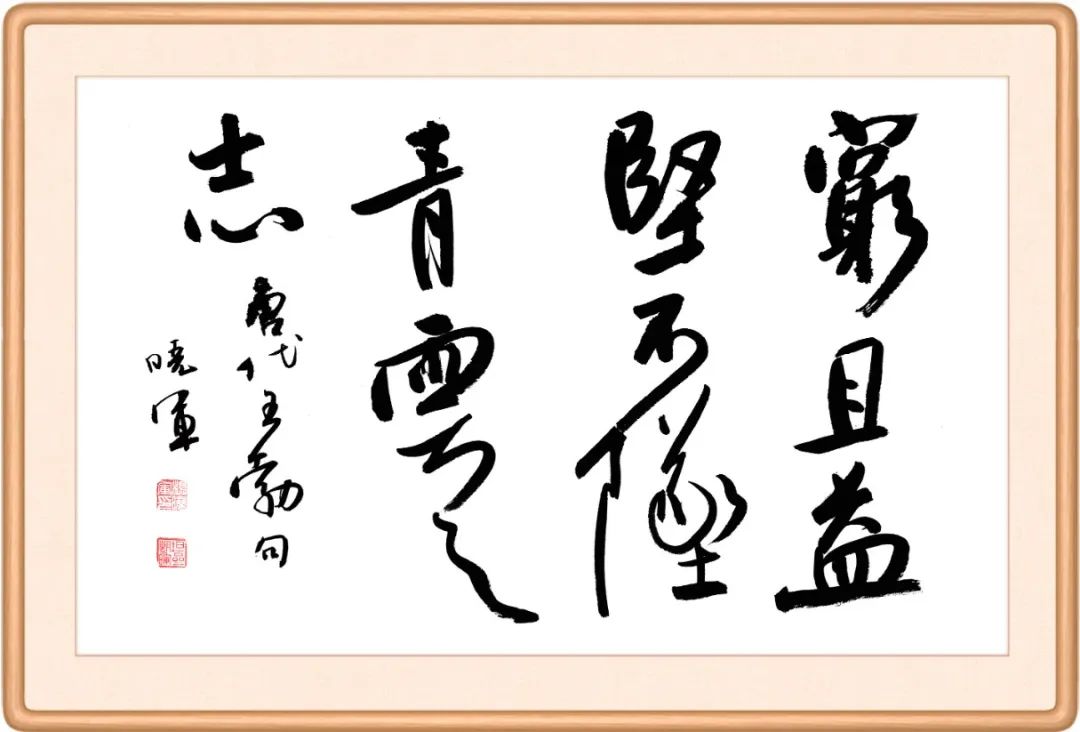 窮且益
堅不墜
青雲之
志
唐代王勃句
晓軍